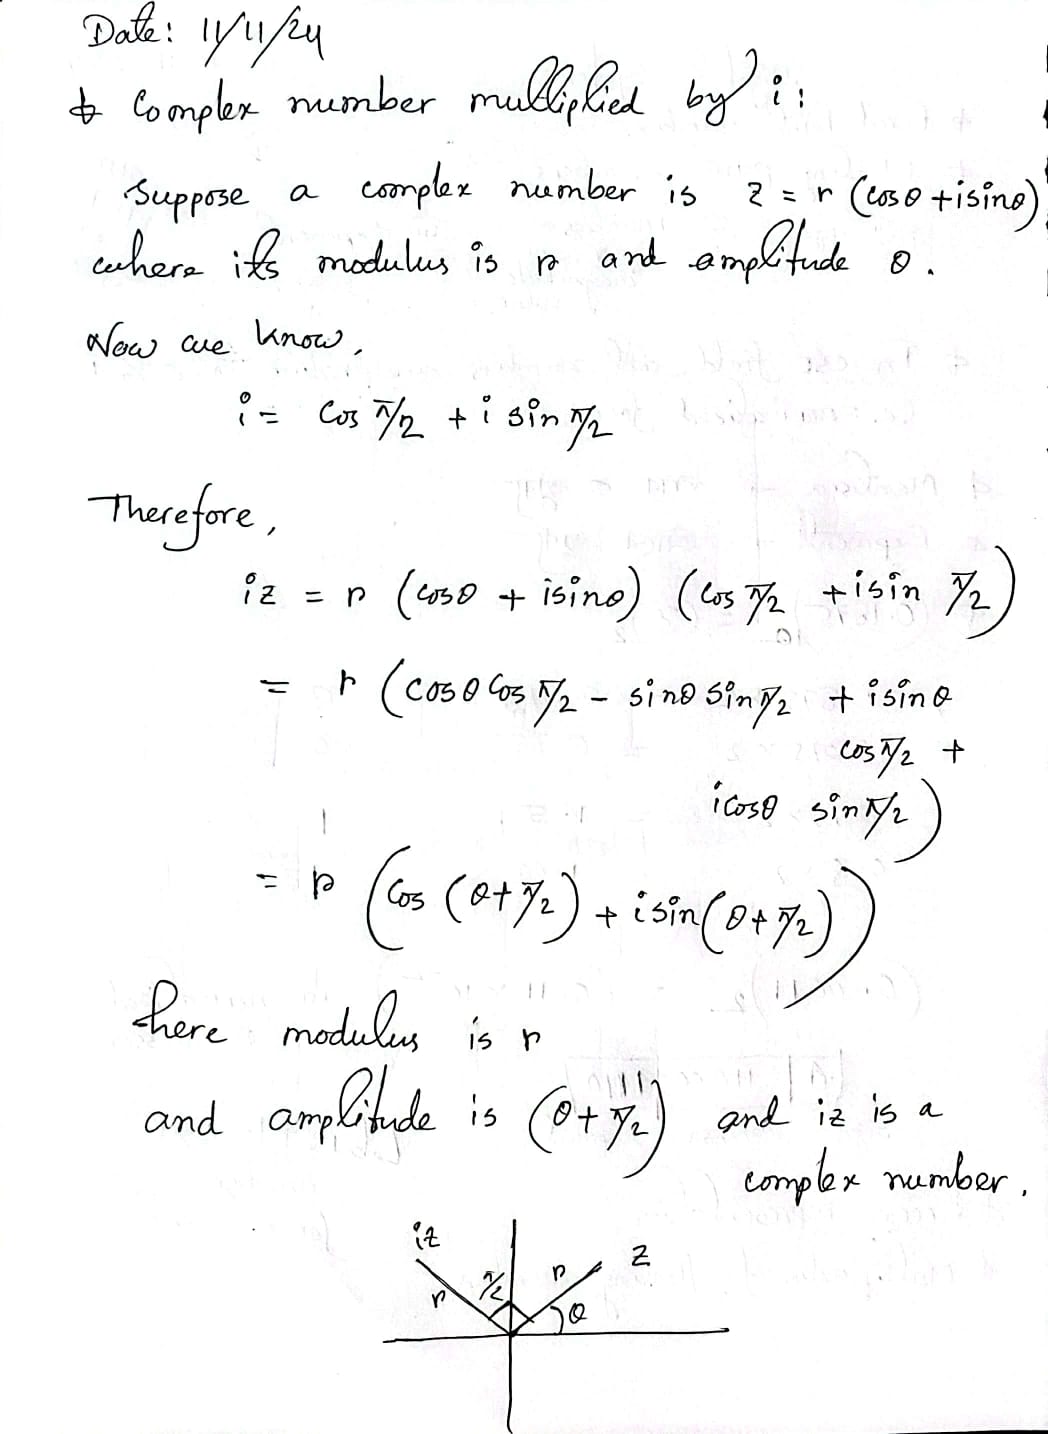 Date: 11/11/24
Complex number multiplied by i:
Suppose a complex number is z = r (cosθ + isinθ)
where its modulus is r and amplitude θ.
Now we know,
i = cos π/2 + i sin π/2
Therefore,
iz = r (cosθ + isinθ) (cos π/2 + isin π/2)
= r (cosθ cos π/2 - sinθ sin π/2 + isinθ
cos π/2 +
icosθ sin π/2)
= r (cos (θ+π/2) + isin(θ+π/2))
here modulus is r
and amplitude is (θ+π/2) and iz is a
complex number.
iz z
r π/2 r θ